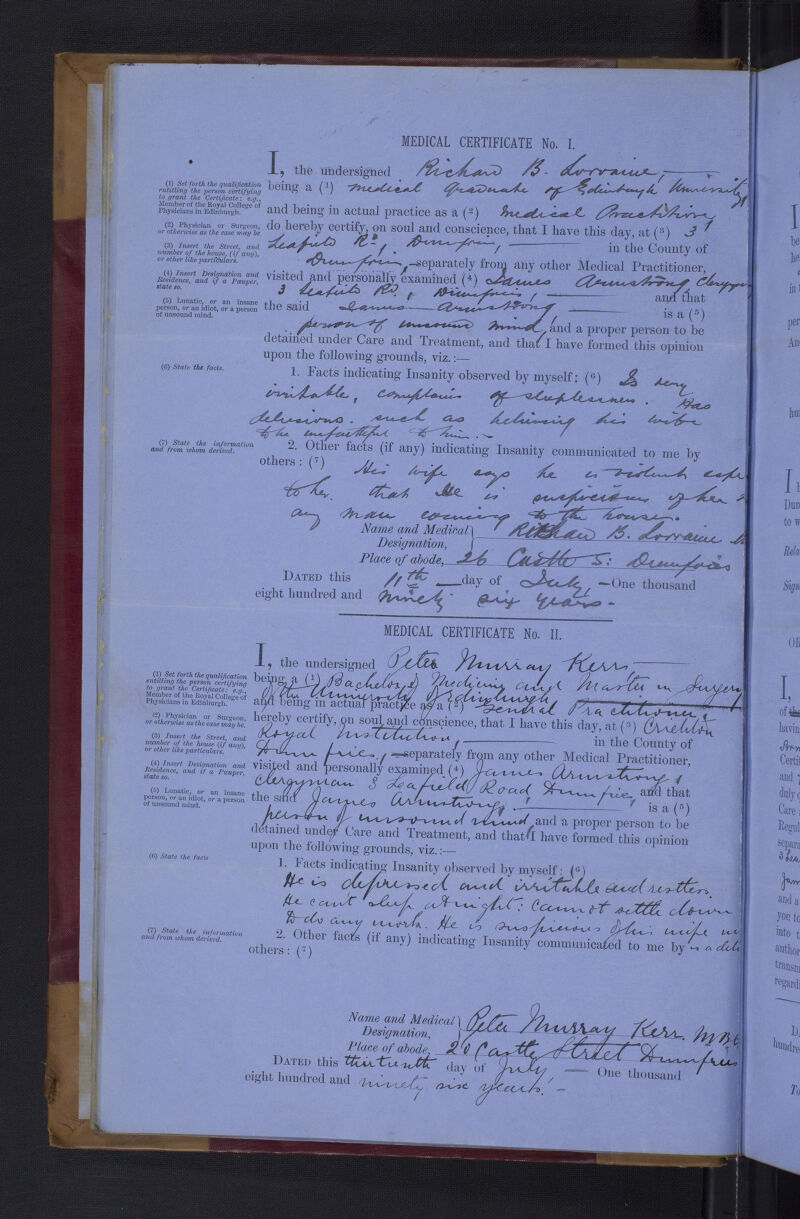 MEDICAL CERTIFICATE No. I.
I, the undersigned Richard B. Lorraine,
(1) Set forth the qualification entitling the person certifying to grant the Certificate: e.g., Member of the Royal College of Physicians in Edinburgh.
being a (1) medical graduate of Edinburgh University
and being in actual practice as a (2) Medical Practitioner
(2) Physician or Surgeon, or otherwise as the case may be
do hereby certify, on soul and conscience, that I have this day, at (3) 3
(3) Insert the Street, and number of the house, (if any), or other like particulars.
Leafield Rd, Dumfries, in the County of
Dumfries, separately from any other Medical Practitioner,
(4) Insert Designation and Residence, and if a Pauper, state so.
visited and personally examined (4) James Armstrong Clergyman
3 Leafield Rd, Dumfries, and that
(5) Lunatic, or an insane person, or an idiot, or a person of unsound mind.
the said James Armstrong is a (5)
person of unsound mind, and a proper person to be
detained under Care and Treatment, and that I have formed this opinion
upon the following grounds, viz.:—
(6) State the facts.
1. Facts indicating Insanity observed by myself: (6) Is very
irritable, complains of sleeplessness. Has
delusions. such as believing his wife
to be unfaithful to him.
(7) State the information and from whom derived.
2. Other facts (if any) indicating Insanity communicated to me by
others: (7) His wife says he is violent
to her. that he is suspicious of her
any man coming to the house.
Name and Medical Designation, Richard B. Lorraine
Place of abode, 26 Castle S: Dumfries
DATED this 11th day of July, —One thousand
eight hundred and ninety six years -
MEDICAL CERTIFICATE No. II.
I, the undersigned Peter Murray Kerr
(1) Set forth the qualification entitling the person certifying to grant the Certificate: e.g., Member of the Royal College of Physicians in Edinburgh.
being a (1) Bachelor of Medicine and Master in Surgery
of the University of Edinburgh
and being in actual practice as a (2) General Practitioner,
(2) Physician or Surgeon, or otherwise as the case may be.
hereby certify, on soul and conscience, that I have this day, at (3) Crichton
(3) Insert the Street, and number of the house (if any), or other like particulars.
Royal Institution, in the County of
Dumfries, separately from any other Medical Practitioner,
(4) Insert Designation and Residence, and if a Pauper, state so.
visited and personally examined (4) James Armstrong,
Clergyman 3 Leafield Road Dumfries, and that
(5) Lunatic, or an insane person, or an idiot, or a person of unsound mind.
the said James Armstrong is a (5)
person of unsound mind, and a proper person to be
detained under Care and Treatment, and that I have formed this opinion
upon the following grounds, viz.:—
(6) State the facts
1. Facts indicating Insanity observed by myself: (6)
He is depressed and irritable and restless.
He cant sleep at night: cannot settle down
to do any work. He is suspicious of his wife
(7) State the information and from whom derived.
2. Other facts (if any) indicating Insanity communicated to me by
others: (7)
Name and Medical Designation, Peter Murray Kerr. M.B.
Place of abode, 20 Castle Street Dumfries
DATED this thirteenth day of July, — One thousand
eight hundred and ninety six years. -